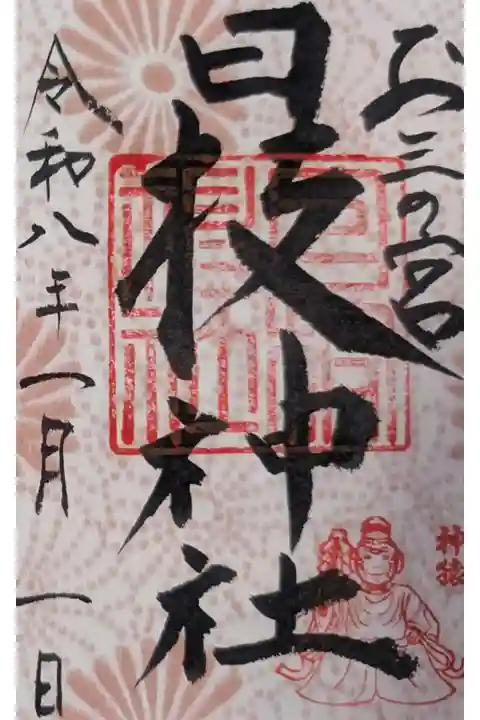 お三の宮
日枝神社
神猿
令和八年一月一日